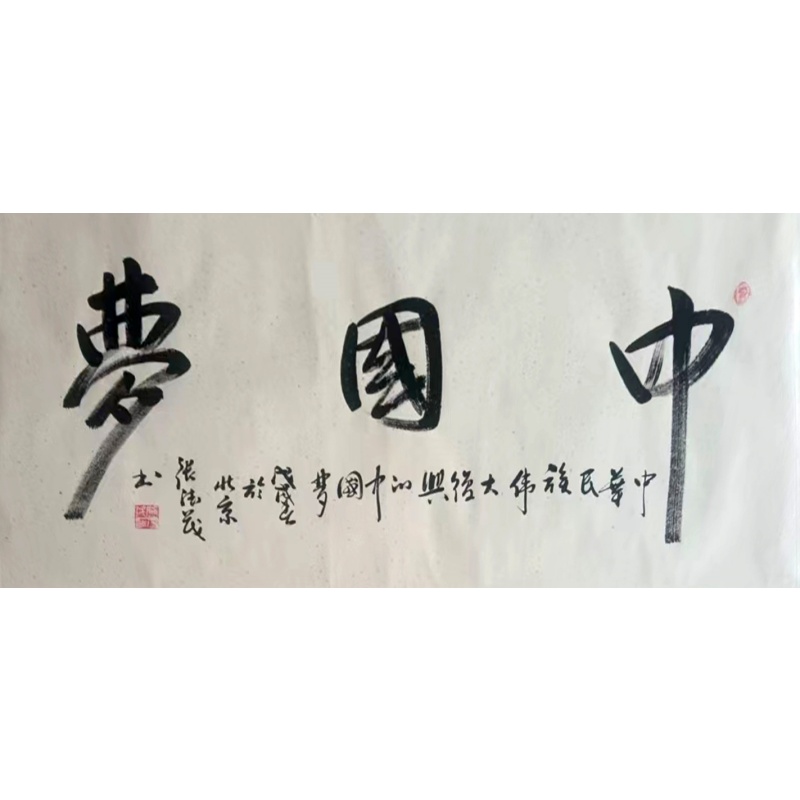 中國夢
中華民族伟大復興的中國夢 戊戌 於北京 張德茂 书